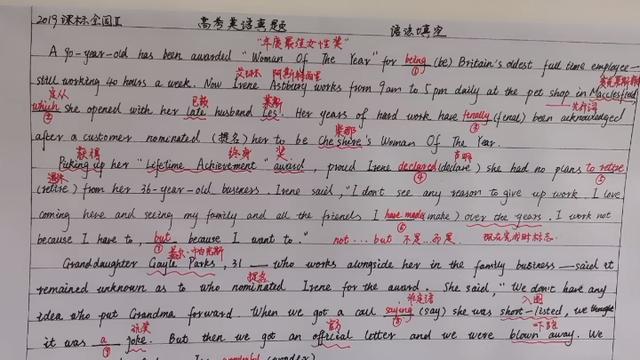 2019课标全国Ⅱ 高考英语真题 语法填空
"年度最佳女性奖"
A 90-year-old has been awarded "Woman Of The Year" for being (be) Britain's oldest full time employee—
①
艾琳 阿斯特伯里
still working 40 hours a week. Now Irene Astbury works from 9am to 5pm daily at the pet shop in Macclesfield,
定从 已故 莱斯 关系词
which she opened with her late husband Les. Her years of hard work have finally (final) been acknowledged
② ③
after a customer nominated (提名) her to be Cheshire's Woman Of The Year.
获得 终身 奖 声明
Picking up her "Lifetime Achievement" award, proud Irene declared (declare) she had no plans to retire
退休 ④ ⑤
(retire) from her 36-year-old business. Irene said, "I don't see any reason to give up work. I love
coming here and seeing my family and all the friends I have made (make) over the years. I work not
⑥
because I have to, but because I want to." not...but 不是...而是 现在完成时标志
⑦
Granddaughter Gayle Parks, 31 — who works alongside her in the family business — said it
提名
remained unknown as to who nominated Irene for the award. She said, "We don't have any
非谓语 入围
idea who put Grandma forward. When we got a call saying (say) she was short-listed, we thought
⑧
玩笑 官方 吓跑
it was a joke. But then we got an official letter and we were blown away. We
⑨